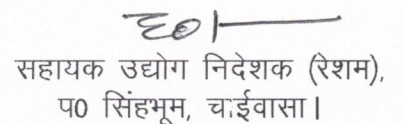 ह०/-
सहायक उद्योग निदेशक (रेशम),
प0 सिंहभूम, चाईवासा।